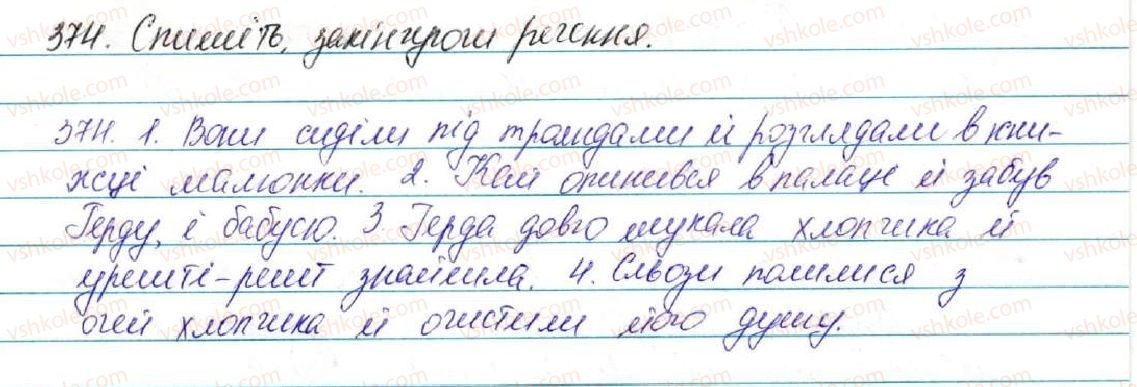 374. Спишіть, закінчуючи речення.
374. 1. Вони сиділи під трояндами й розглядали в кни-
жці малюнки. 2. Кай опинився в палаці й забув
Герду, і бабусю. 3. Герда довго шукала хлопчика й
урешті-решт знайшла. 4. Сльози полилися з
очей хлопчика й очистили його душу.